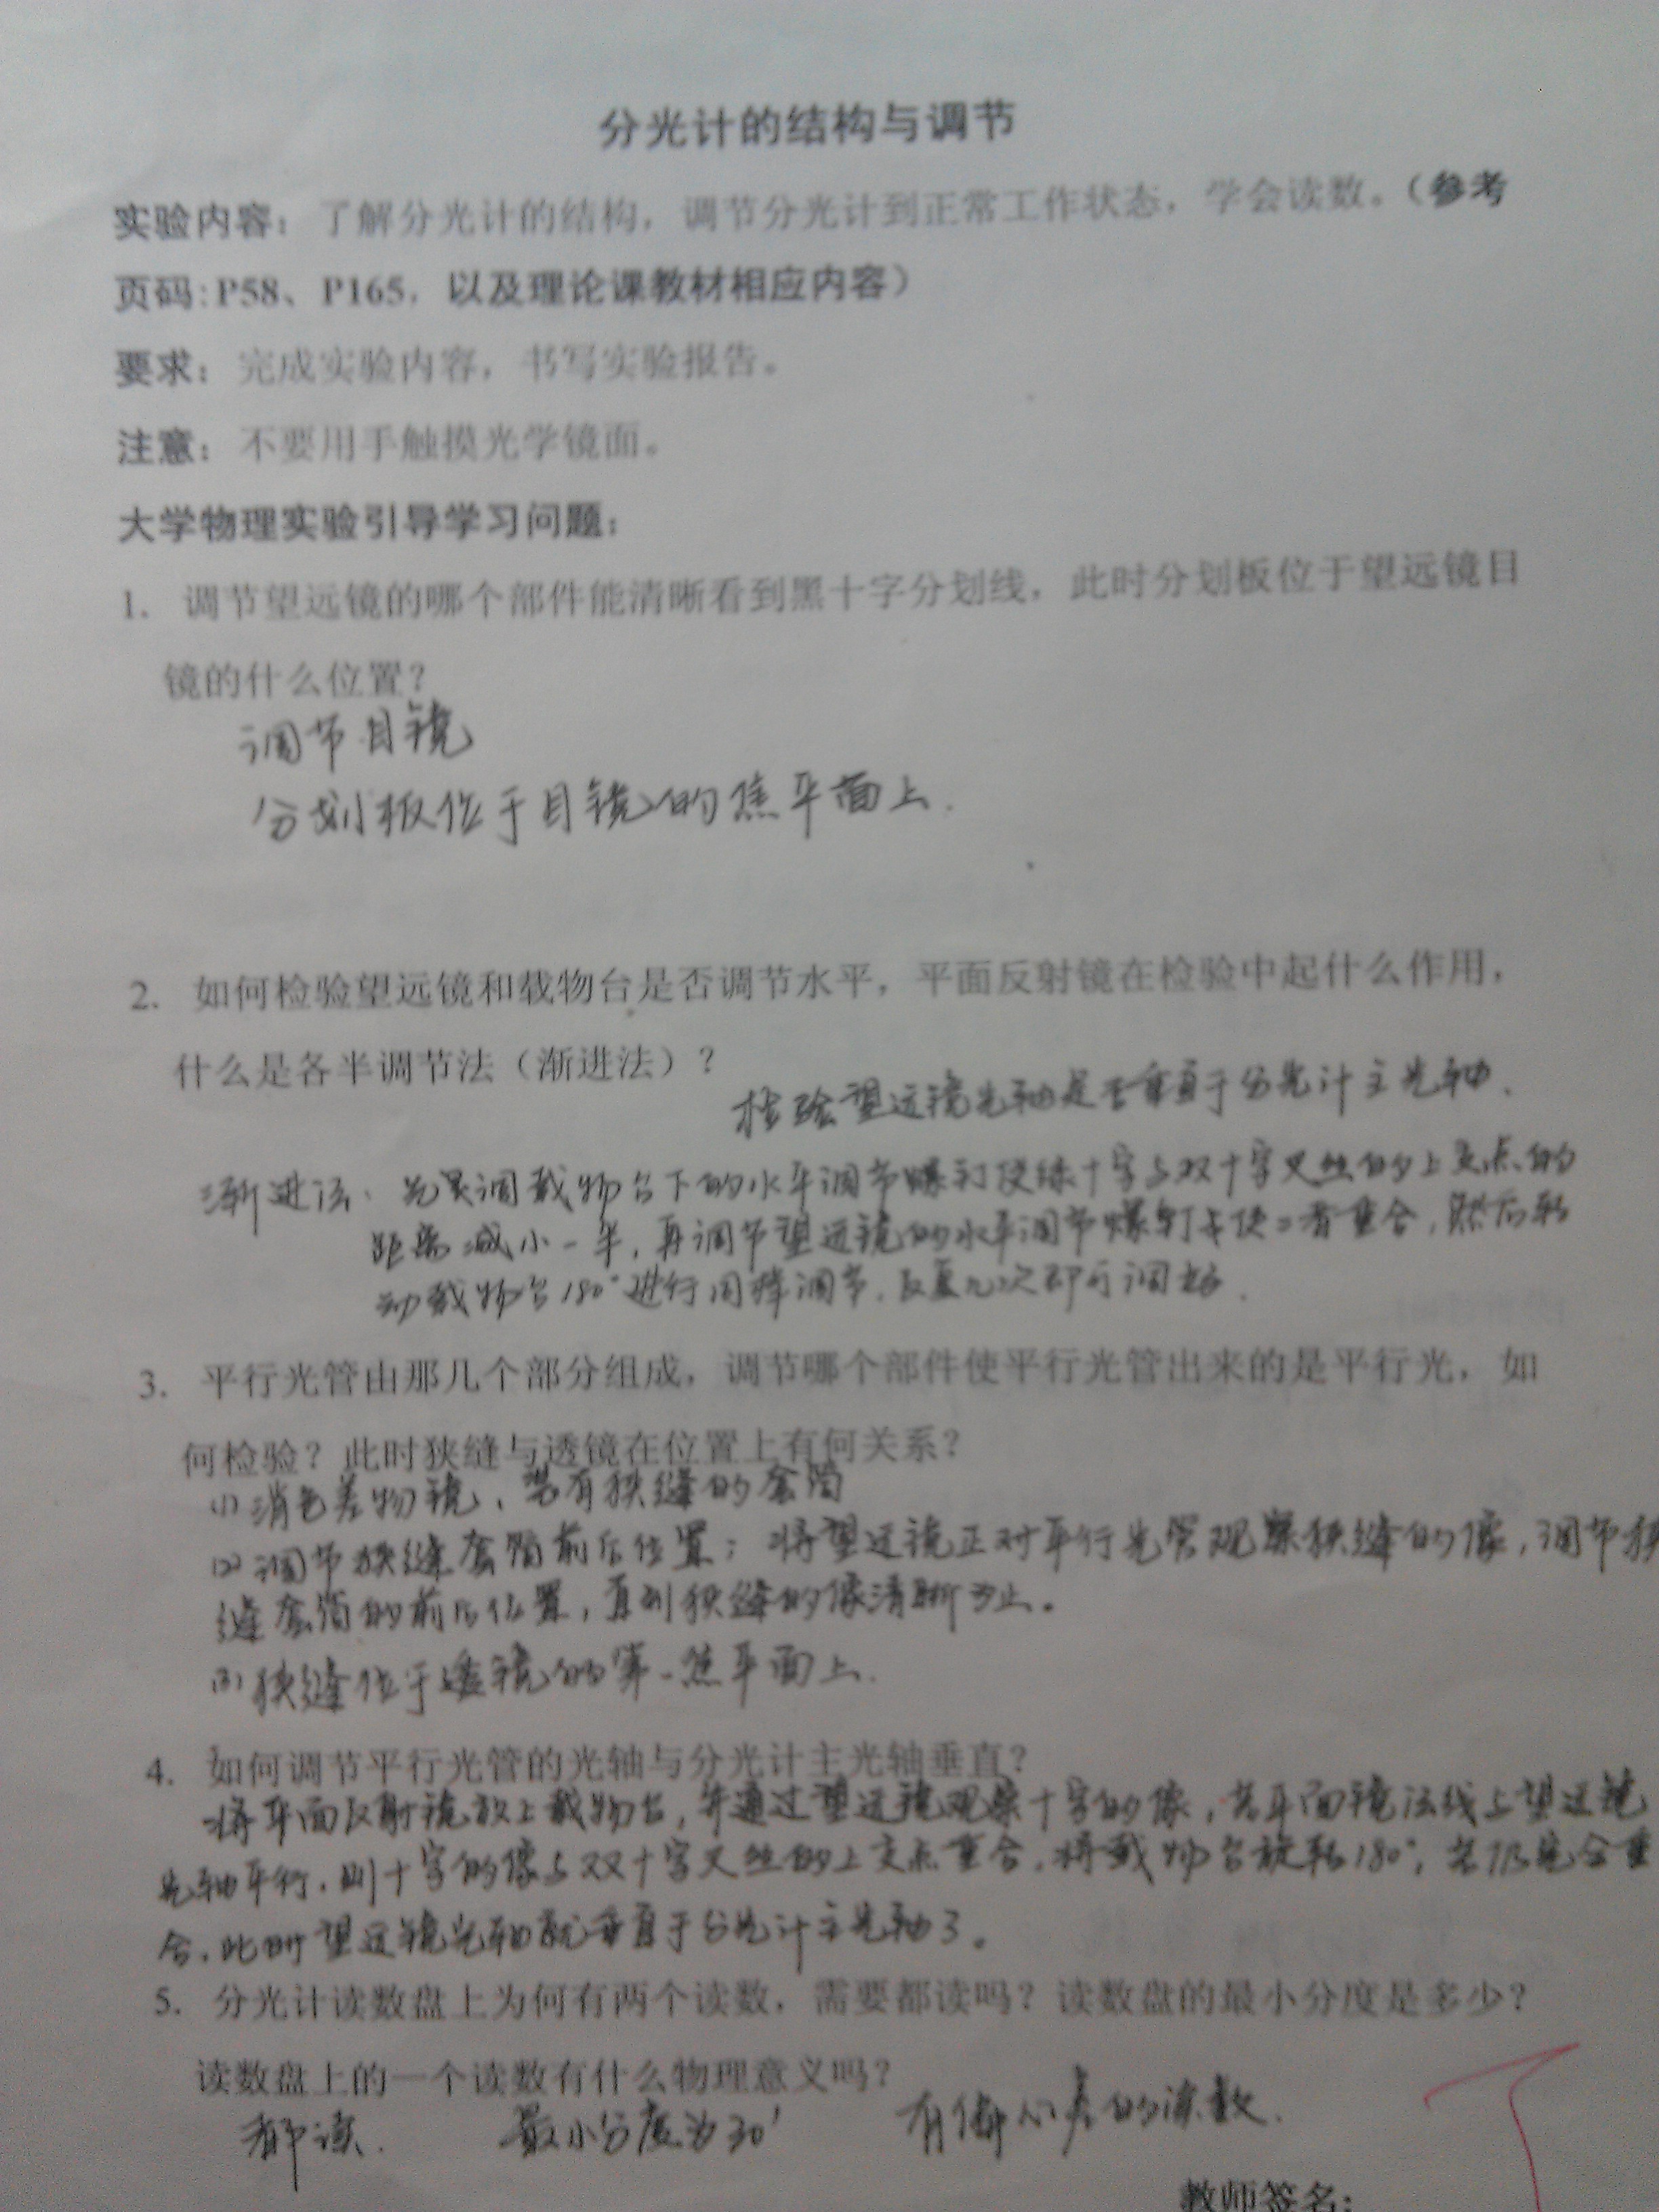 分光计的结构与调节
实验内容：了解分光计的结构，调节分光计到正常工作状态，学会读数。（参考
页码：P58、P165，以及理论课教材相应内容）
要求：完成实验内容，书写实验报告。
注意：不要用手触摸光学镜面。
大学物理实验引导学习问题：
1. 调节望远镜的哪个部件能清晰看到黑十字分划线，此时分划板位于望远镜目
镜的什么位置？
调节目镜
分划板位于目镜的焦平面上.
2. 如何检验望远镜和载物台是否调节水平，平面反射镜在检验中起什么作用，
什么是各半调节法（渐进法）？
检验望远镜光轴是否垂直于分光计主光轴.
渐进法：先调载物台下的水平调节螺钉使绿十字与双十字叉丝的上交点的
距离减小一半，再调节望远镜的水平调节螺钉使二者重合，然后转
动载物台180°进行同样调节.反复几次即可调好.
3. 平行光管由那几个部分组成，调节哪个部件使平行光管出来的是平行光，如
何检验？此时狭缝与透镜在位置上有何关系？
(1)消色差物镜、带有狭缝的套筒
(2)调节狭缝套筒前后位置；将望远镜正对平行光管观察狭缝的像，调节狭
缝套筒的前后位置，直到狭缝的像清晰为止。
(3)狭缝位于透镜的第一焦平面上.
4. 如何调节平行光管的光轴与分光计主光轴垂直？
将平面反射镜放上载物台，并通过望远镜观察十字的像，若平面镜法线与望远镜
光轴平行，则十字的像与双十字叉丝的上交点重合.将载物台旋转180°，若仍完全重
合，此时望远镜光轴就垂直于分光计主光轴了。
5. 分光计读数盘上为何有两个读数，需要都读吗？读数盘的最小分度是多少？
读数盘上的一个读数有什么物理意义吗？
都读. 最小分度为30′ 有偏心差的读数.
教师签名：